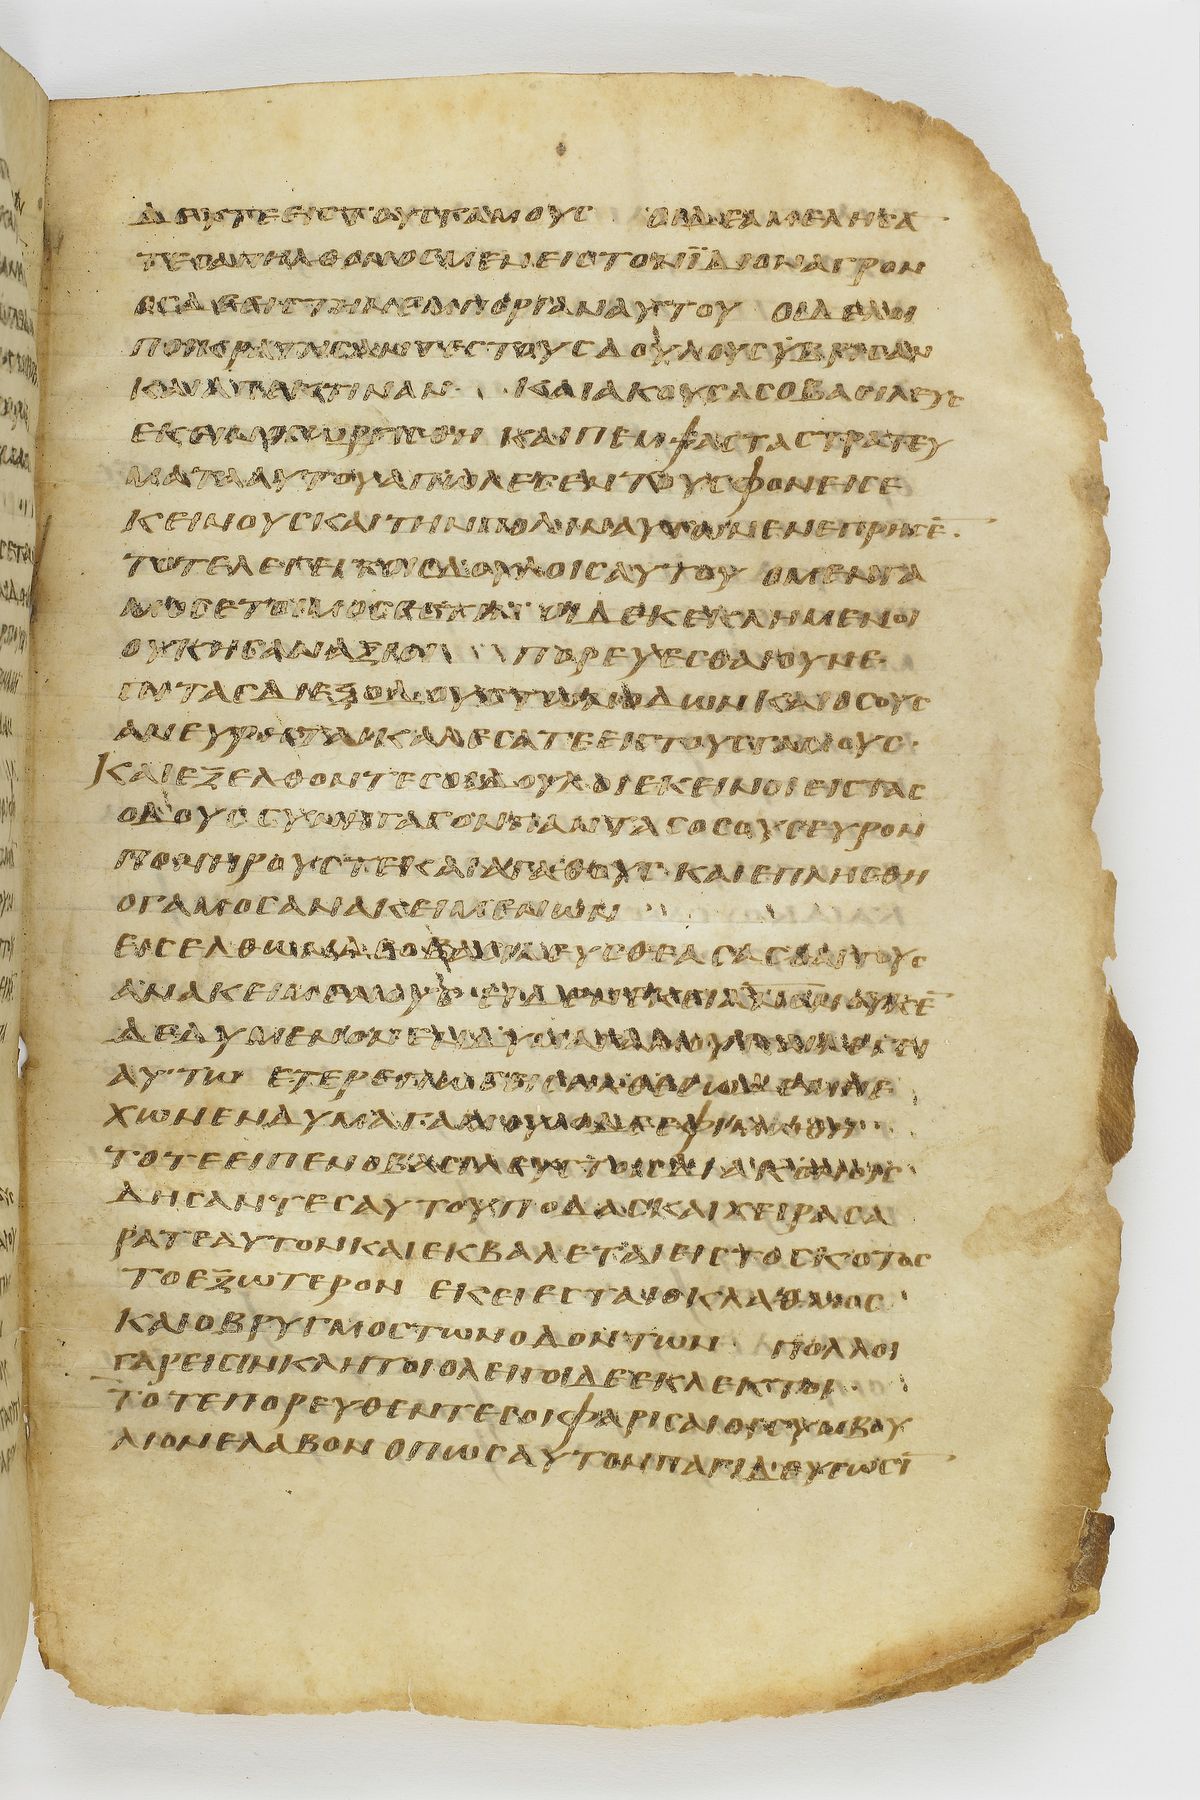 ΔΕΥΤΕ ΕΙC ΤΟΥC ΓΑΜΟΥC ΟΙ ΔΕ ΑΜΕΛΗCΑ
ΤΕC ΑΠΗΛΘΟΝ ΟC ΜΕΝ ΕΙC ΤΟΝ ΪΔΙΟΝ ΑΓΡΟΝ
ΟC ΔΕ ΕΠΙ ΤΗΝ ΕΜΠΟΡΙΑΝ ΑΥΤΟΥ ΟΙ ΔΕ ΛΟΙ
ΠΟΙ ΚΡΑΤΗCΑΝΤΕC ΤΟΥC ΔΟΥΛΟΥC ΫΒΡΙCΑΝ
ΚΑΙ ΑΠΕΚΤΙΝΑΝ · ΚΑΙ ΑΚΟΥCΑC Ο ΒΑCΙΛΕΥC
ΕΚΕΙΝΟC ΩΡΓΙCΘΗ ΚΑΙ ΠΕΜΨΑC ΤΑ CΤΡΑΤΕΥ
ΜΑΤΑ ΑΥΤΟΥ ΑΠΩΛΕCΕΝ ΤΟΥC ΦΟΝΕΙC Ε
ΚΕΙΝΟΥC ΚΑΙ ΤΗΝ ΠΟΛΙΝ ΑΥΤΩΝ ΕΝΕΠΡΗCΕ̄ ·
ΤΟΤΕ ΛΕΓΕΙ ΤΟΙC ΔΟΥΛΟΙC ΑΥΤΟΥ Ο ΜΕΝ ΓΑ
ΜΟC ΕΤΟΙΜΟC ΕCΤΙΝ ΟΙ ΔΕ ΚΕΚΛΗΜΕΝΟΙ
ΟΥΚ ΗCΑΝ ΑΞΙΟΙ ΠΟΡΕΥΕCΘΑΙ ΟΥΝ Ε
ΠΙ ΤΑC ΔΙΕΞΟΔΟΥC ΤΩΝ ΟΔΩΝ ΚΑΙ ΟCΟΥC
ΑΝ ΕΥΡΗΤΑΙ ΚΑΛΕCΑΤΕ ΕΙC ΤΟΥC ΓΑΜΟΥC ·
ΚΑΙ ΕΞΕΛΘΟΝΤΕC ΟΙ ΔΟΥΛΟΙ ΕΚΕΙΝΟΙ ΕΙC ΤΑC
ΟΔΟΥC CΥΝΗΓΑΓΟΝ ΠΑΝΤΑC ΟCΟΥC ΕΥΡΟΝ
ΠΟΝΗΡΟΥC ΤΕ ΚΑΙ ΑΓΑΘΟΥC · ΚΑΙ ΕΠΛΗCΘΗ
Ο ΓΑΜΟC ΑΝΑΚΕΙΜΕΝΩΝ
ΕΙCΕΛΘΩΝ ΔΕ Ο ΒΑCΙΛΕΥC ΘΕΑCΑCΘΑΙ ΤΟΥC
ΑΝΑΚΕΙΜΕΝΟΥC ΕΙΔΕΝ ΕΚΕΙ ΑΝΟΝ ΟΥΚ Ε̄
ΔΕΔΥΜΕΝΟΝ ΕΝΔΥΜΑ ΓΑΜΟΥ ΚΑΙ ΛΕΓΕΙ
ΑΥΤΩ ΕΤΕΡΕ ΠΩC ΕΙCΗΛΘΕC ΩΔΕ ΜΗ Ε
ΧΩΝ ΕΝΔΥΜΑ ΓΑΜΟΥ Ο ΔΕ ΕΦΙΜΩΘΗ
ΤΟΤΕ ΕΙΠΕΝ Ο ΒΑCΙΛΕΥC ΤΟΙC
ΔΗCΑΝΤΕC ΑΥΤΟΥ ΠΟΔΑC ΚΑΙ ΧΕΙΡΑC Α
ΡΑΤΕ ΑΥΤΟΝ ΚΑΙ ΕΚΒΑΛΕΤΑΙ ΕΙC ΤΟ CΚΟΤΟC
ΤΟ ΕΞΩΤΕΡΟΝ ΕΚΕΙ ΕCΤΑΙ Ο ΚΛΑΘΜΟC
ΚΑΙ Ο ΒΡΥΓΜΟC ΤΩΝ ΟΔΟΝΤΩΝ · ΠΟΛΛΟΙ
ΓΑΡ ΕΙCΙΝ ΚΛΗΤΟΙ ΟΛΕΙΓΟΙ ΔΕ ΕΚΛΕΚΤΟΙ ·
ΤΟΤΕ ΠΟΡΕΥΘΕΝΤΕC ΟΙ ΦΑΡΙCΑΙΟΙ CΥΜΒΟΥ
ΛΙΟΝ ΕΛΑΒΟΝ ΟΠΩC ΑΥΤΟΝ ΠΑΓΙΔΕΥCΩCῙ